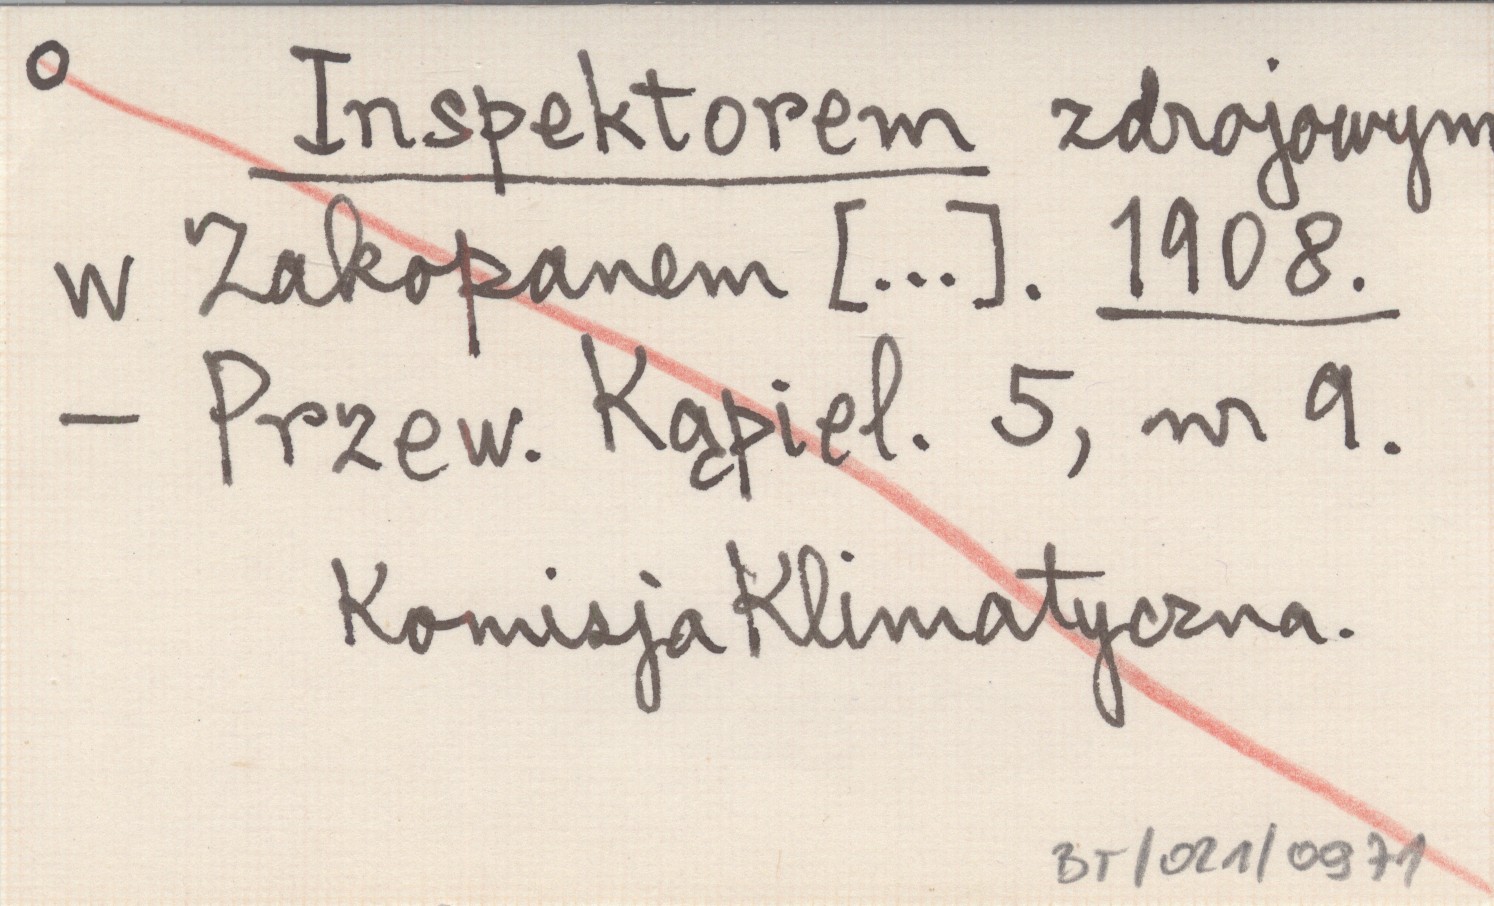 Inspektorem zdrojowym
w Zakopanem [...]. 1908.
– Przew. Kąpiel. 5, nr 9.
Komisja Klimatyczna.
BT/021/0971